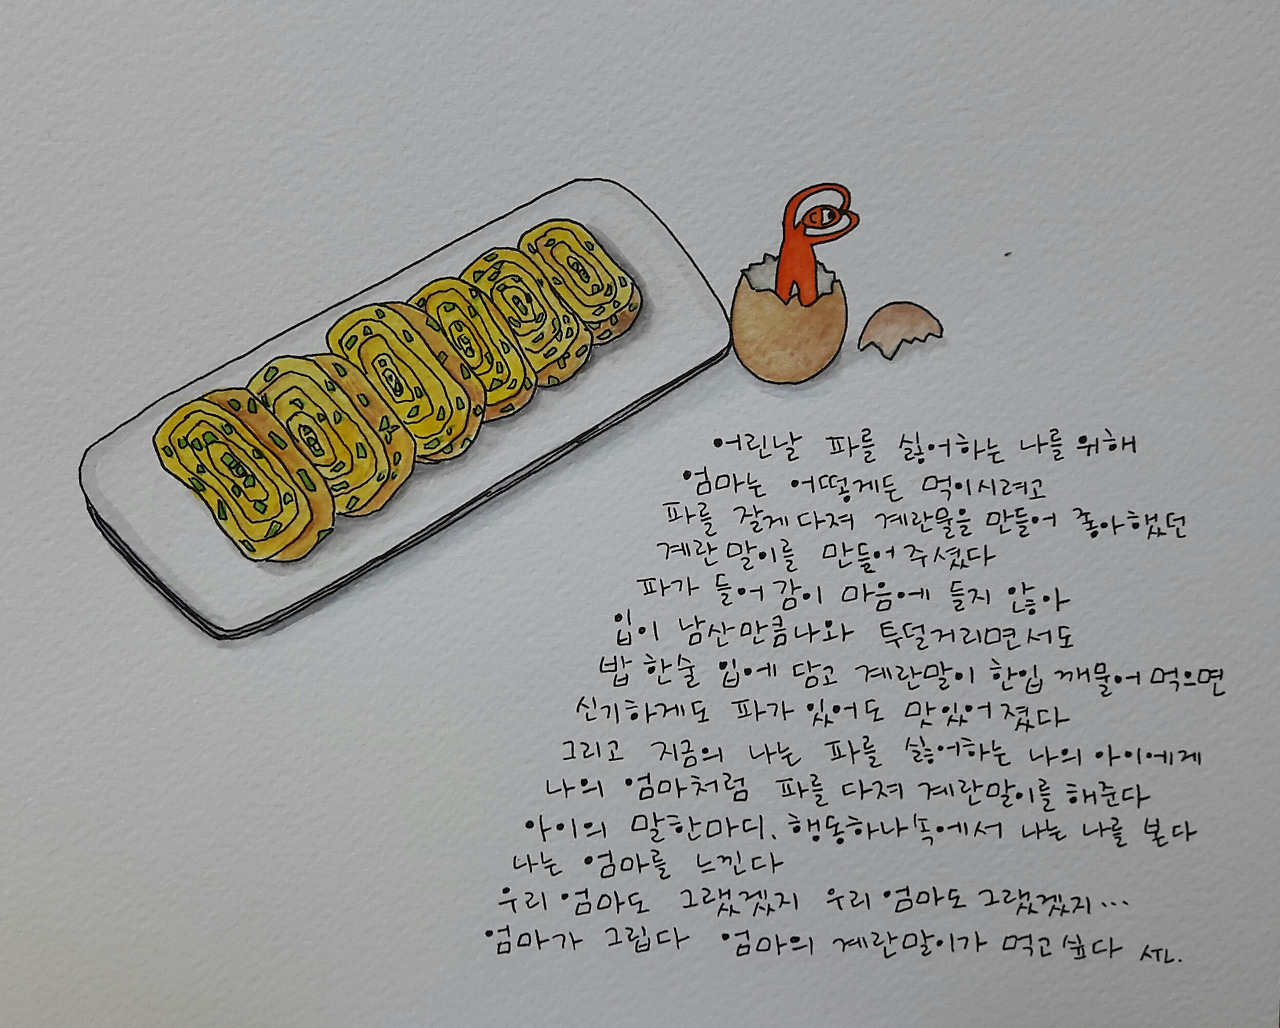 어린날 파를 싫어하는 나를 위해
엄마는 어떻게든 먹이시려고
파를 잘게 다져 계란물을 만들어 좋아했던
계란말이를 만들어주셨다
파가 들어감이 마음에 들지 않아
입이 남산만큼나와 투덜거리면서도
밥 한술 입에 담고 계란말이 한입 깨물어 먹으면
신기하게도 파가 있어도 맛있어졌다
그리고 지금의 나는 파를 싫어하는 나의 아이에게
나의 엄마처럼 파를 다져 계란말이를 해준다
아이의 말한마디, 행동하나 속에서 나는 나를 본다
나는 엄마를 느낀다
우리 엄마도 그랬겠지 우리 엄마도 그랬겠지...
엄마가 그립다 엄마의 계란말이가 먹고싶다